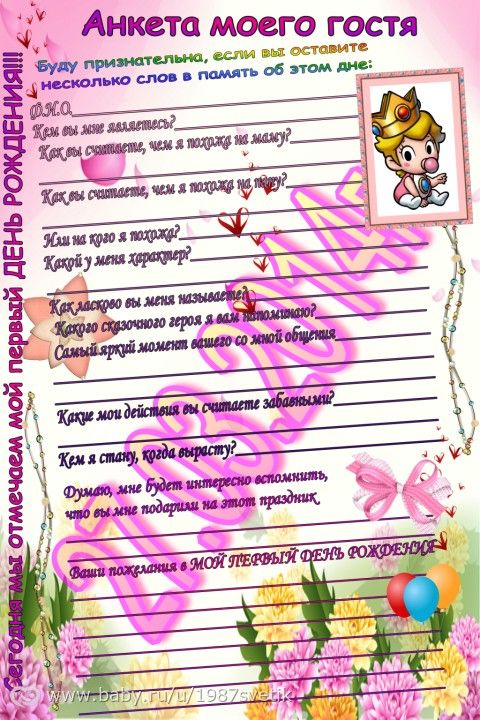 Анкета моего гостя
Буду признательна, если вы оставите
несколько слов в память об этом дне:
Сегодня мы отмечаем мой первый ДЕНЬ РОЖДЕНИЯ!!!
Ф.И.О.
Кем вы мне являетесь?
Как вы считаете, чем я похожа на маму?
Как вы считаете, чем я похожа на папу?
Или на кого я похожа?
Какой у меня характер?
Как ласково вы меня называете?
Какого сказочного героя я вам напоминаю?
Самый яркий момент вашего со мной общения
Какие мои действия вы считаете забавными?
Кем я стану, когда вырасту?
Думаю, мне будет интересно вспомнить,
что вы мне подарили на этот праздник
Ваши пожелания в МОЙ ПЕРВЫЙ ДЕНЬ РОЖДЕНИЯ
27.03.2014г
www.baby.ru/u/1987svetik